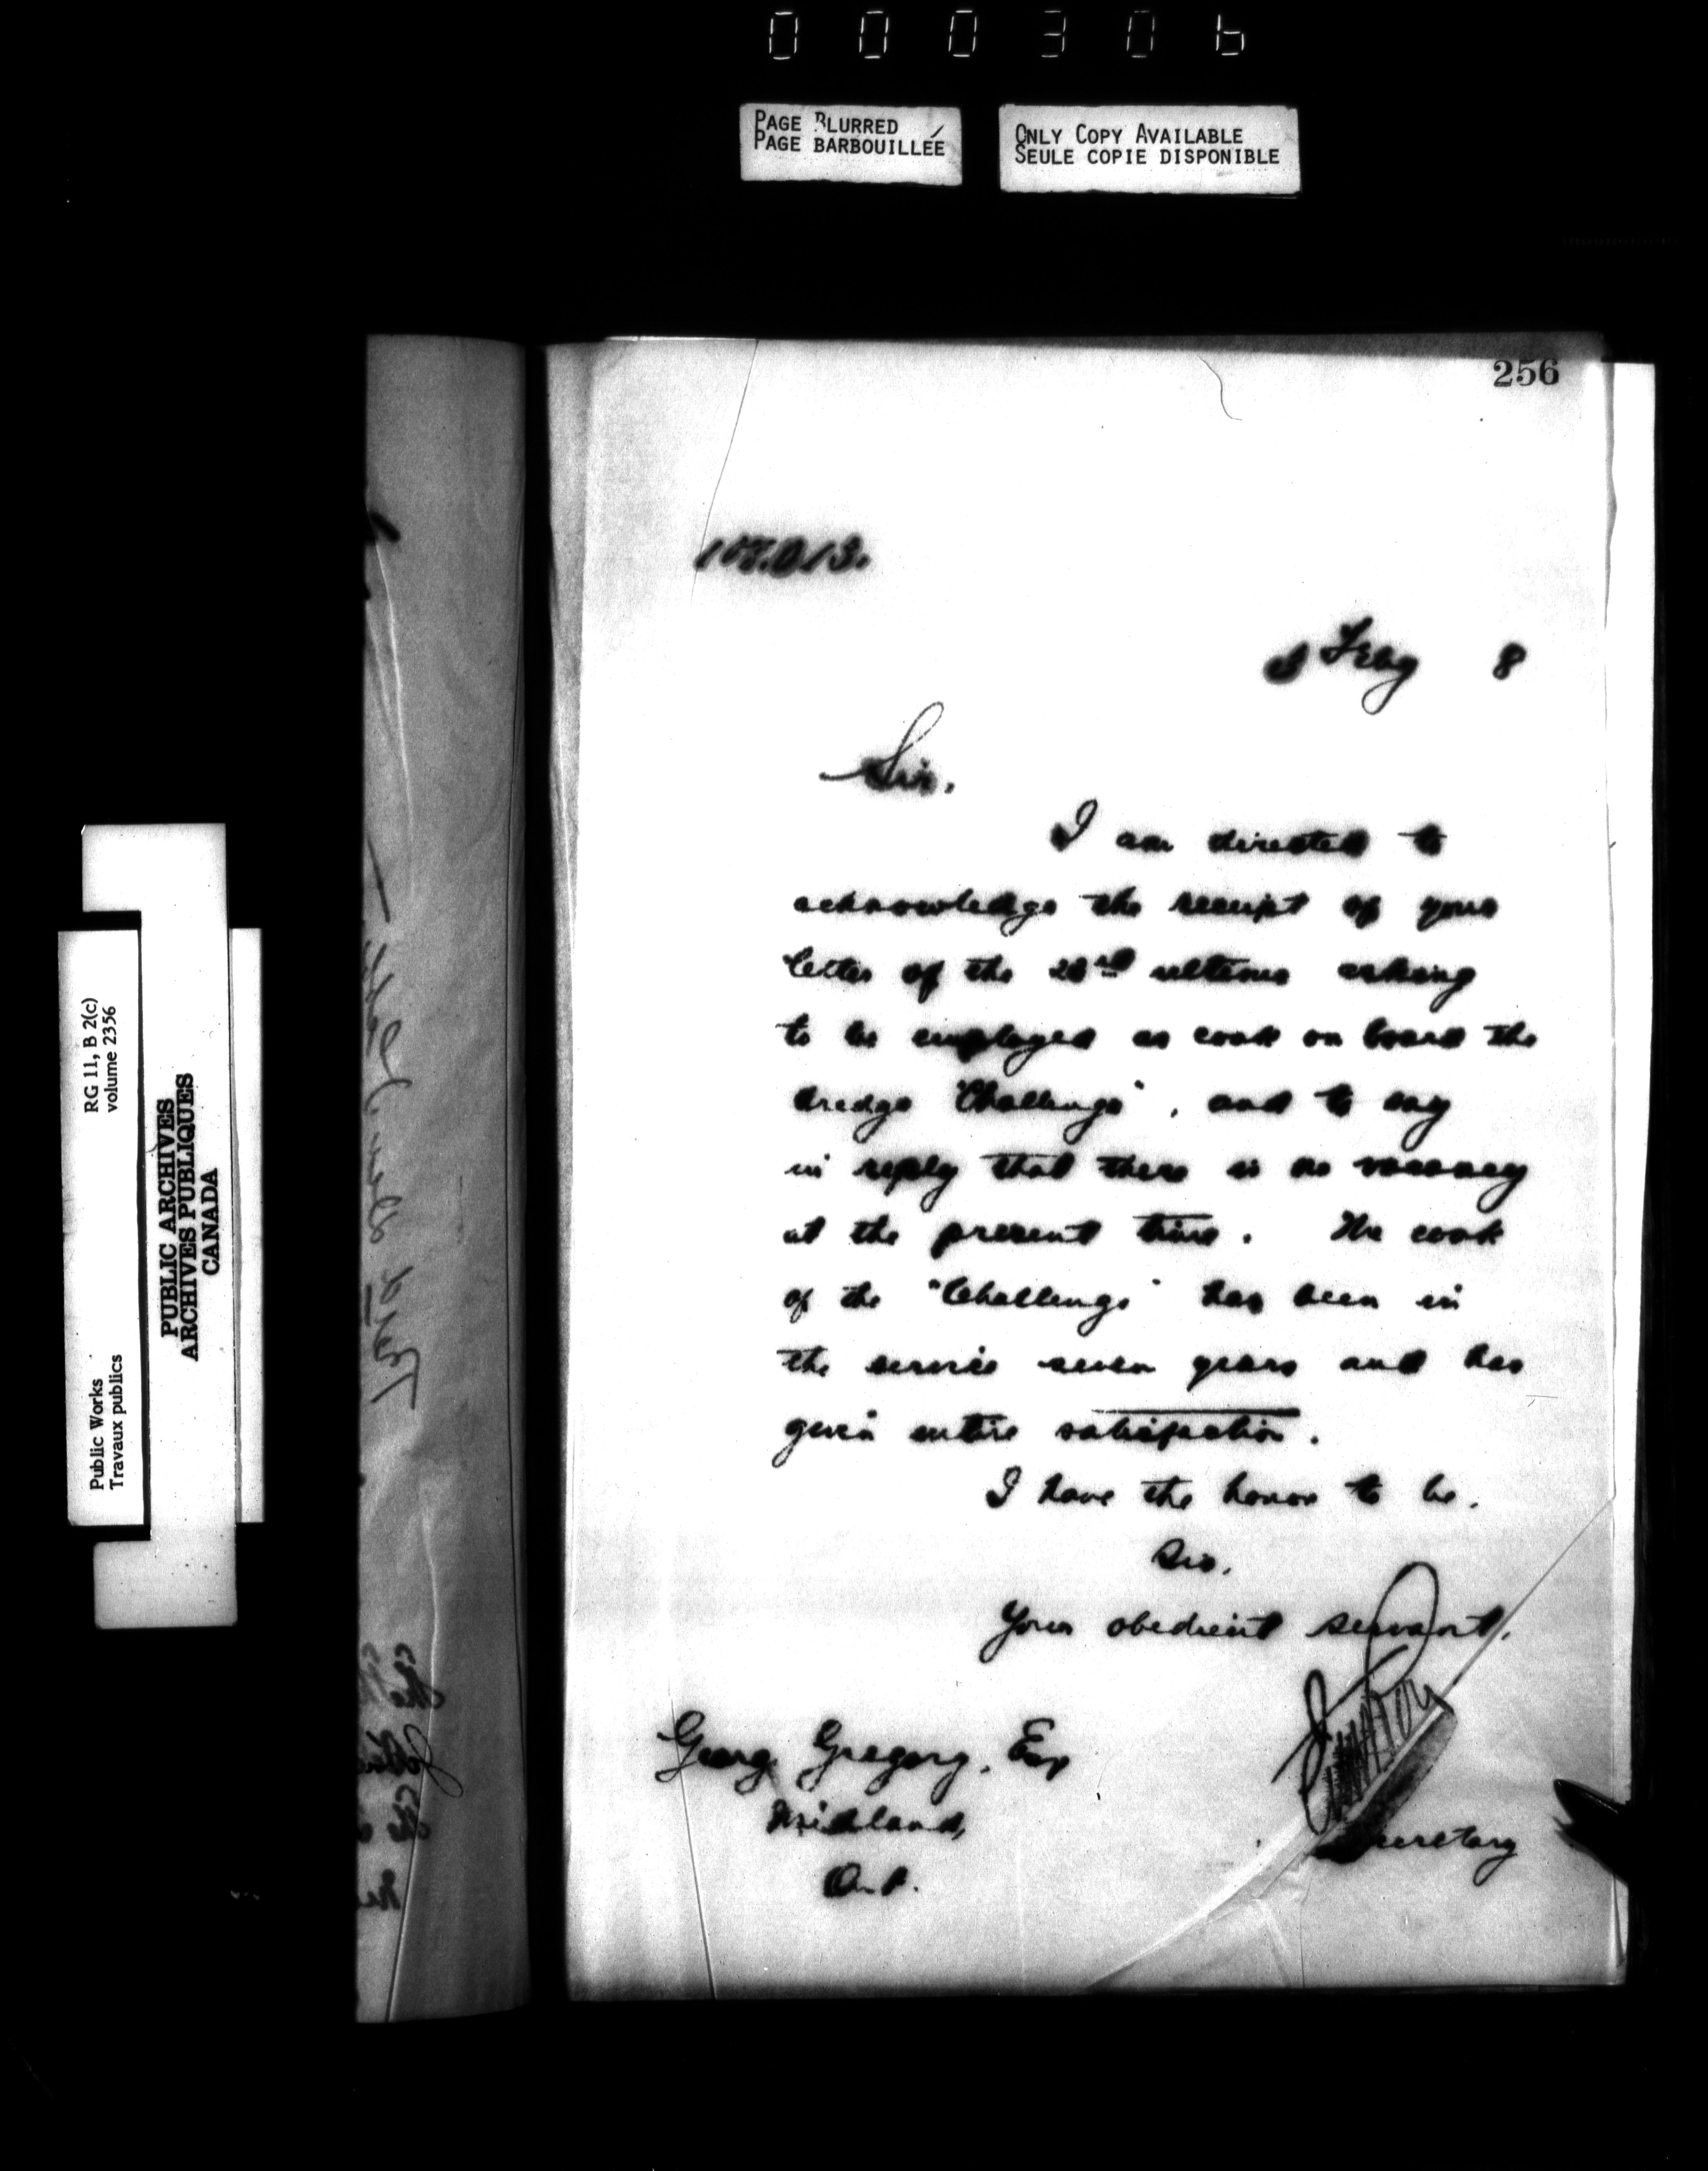 000306
PAGE BLURRED
PAGE BARBOUILLÉE
ONLY COPY AVAILABLE
SEULE COPIE DISPONIBLE
256
Feby 8
Sir,
I am directed to
acknowledge the receipt of your
letter of the ultimo asking
to be employed as cook on board the
dredge "Challenge", and to say
in reply that there is no vacancy
at the present time. The cook
of the "Challenge" has been in
the service seven years and has
given entire satisfaction.
I have the honor to be,
Sir,
Your obedient servant,
Secretary
George Gregory, Esq
Midland,
Ont.
RG 11, B 2(c)
volume 2356
Public Works
Travaux publics
PUBLIC ARCHIVES
ARCHIVES PUBLIQUES
CANADA